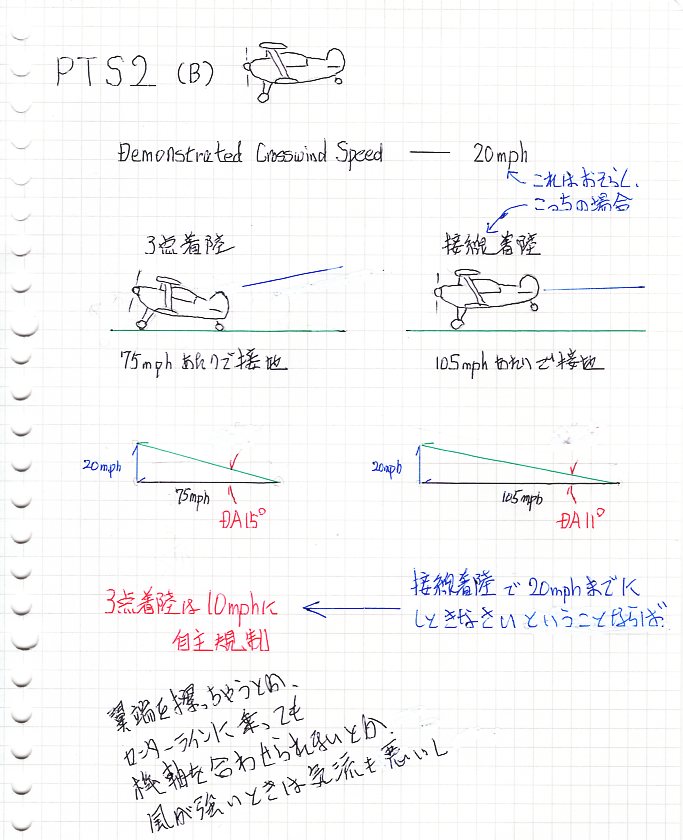 PTS2 (B)
Demonstrated Crosswind Speed — 20mph
これはおそらく、
こっちの場合
3点着陸
接線着陸
75mphあたりで接地
105mphあたりで接地
20mph
75mph
DA15°
20mph
105mph
DA11°
3点着陸は10mphに
自主規制
接線着陸で20mphまでに
しときなさいということならば
翼端を擦っちゃうとか、
センターラインに乗っても
機軸を合わせられないとか
風が強いときは気流も悪いし